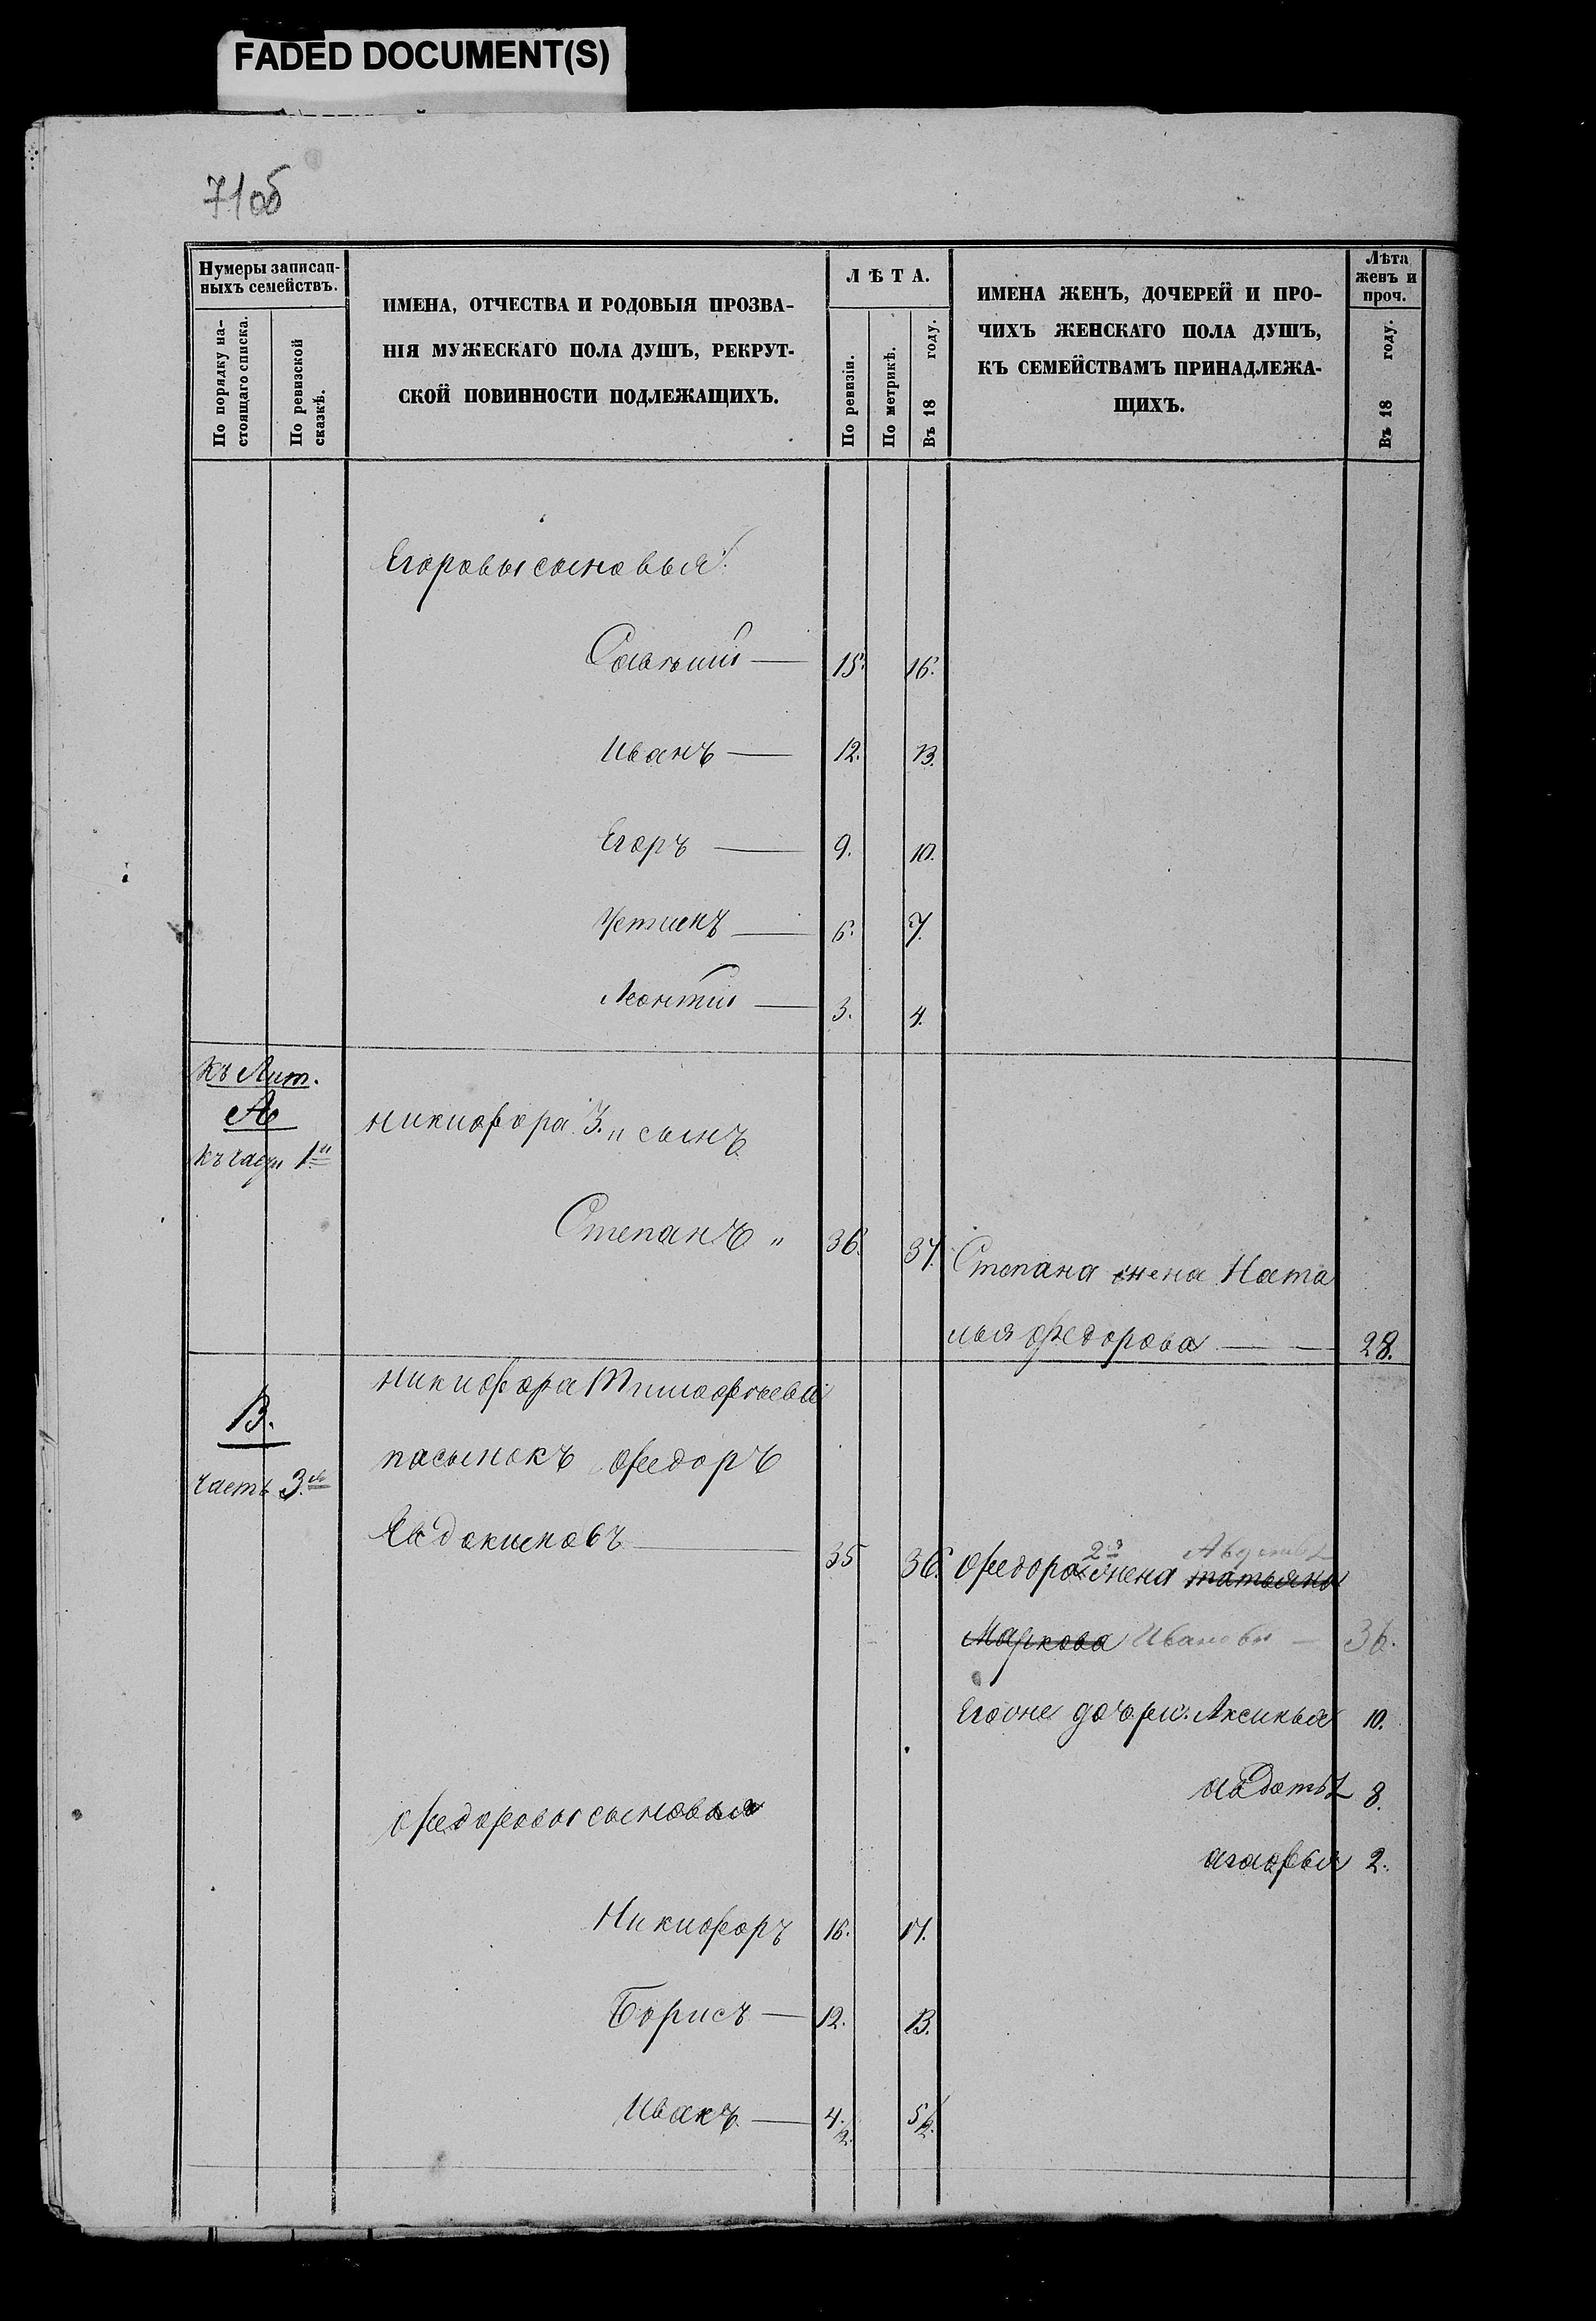 FADED DOCUMENT(S)
71об
Нумеры записан-
ныхъ семействъ.
По порядку на-
стоящаго списка.
По ревизской
сказкѣ.
ИМЕНА, ОТЧЕСТВА И РОДОВЫЯ ПРОЗВА-
НІЯ МУЖЕСКАГО ПОЛА ДУШЪ, РЕКРУТ-
СКОЙ ПОВИННОСТИ ПОДЛЕЖАЩИХЪ.
ЛѢТА.
По ревизіи.
По метрикѣ.
Въ 18 году.
ИМЕНА ЖЕНЪ, ДОЧЕРЕЙ И ПРО-
ЧИХЪ ЖЕНСКАГО ПОЛА ДУШЪ,
КЪ СЕМЕЙСТВАМЪ ПРИНАДЛЕЖА-
ЩИХЪ.
Лѣта
женъ и
проч.
Въ 18 году.
Егоровы сыновья:
15. 16.
Иванъ — 12. 13.
Егоръ — 9. 10.
6. 7.
Леонтій — 3. 4.
Къ Лит.
А
Къ части 1й
Никифора 3. „ сынъ
Степанъ „ 36. 37.
Степана жена Ната
лья Федорова — 28.
В.
Часть 3я
Никифора Тимофѣева
пасынокъ Федоръ
Евдокимовъ — 35 36.
Федора 2я жена Татьяна
Маркова Иванова — 36.
Его же дочери: Аксинья 10.
Авдотья 8.
Агафья 2.
Федоровы сыновья
Никифоръ 16. 17.
Борисъ — 12. 13.
Иванъ — 4.½. 5½.